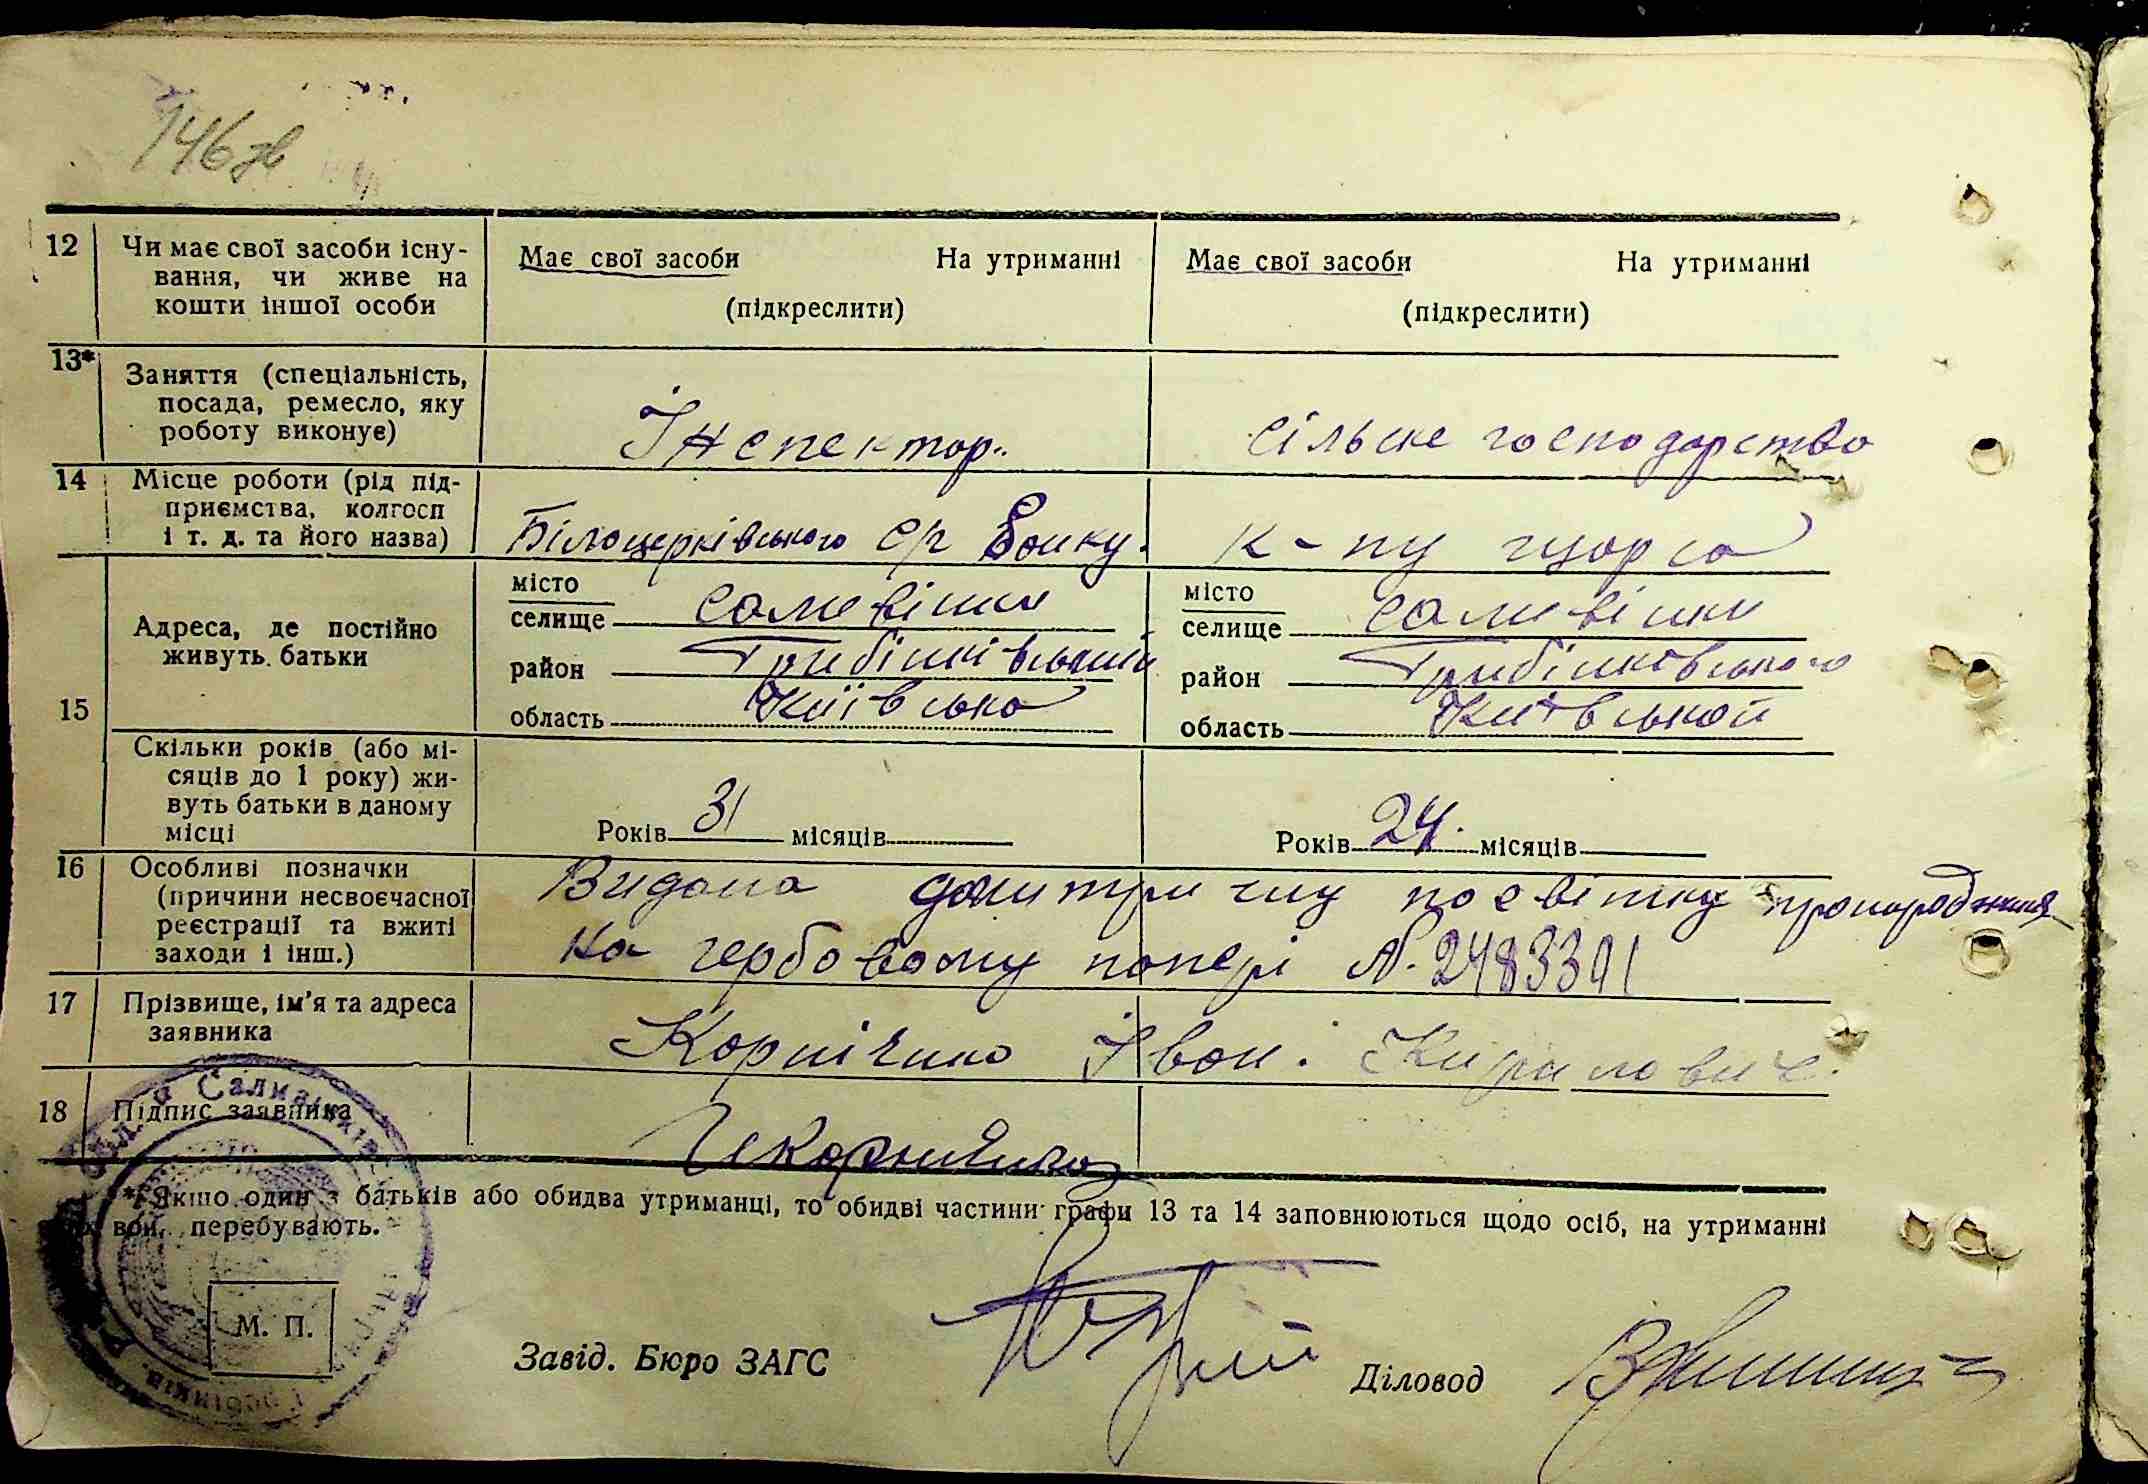 146зв
12 Чи має свої засоби існу-
вання, чи живе на
кошти іншої особи
Має свої засоби На утриманні
(підкреслити)
Має свої засоби На утриманні
(підкреслити)
13* Заняття (спеціальність,
посада, ремесло, яку
роботу виконує)
Інспектор.
сільске господарство
14 Місце роботи (рід під-
приємства, колгосп
і т. д. та його назва)
Білоцерківського с/г Банку.
к-пу щорса
15 Адреса, де постійно
живуть батьки
місто
селище Саливінки
район Грибінківський
область Київська
місто
селище Саливінки
район Грибінківського
область Київськой
Скільки років (або мі-
сяців до 1 року) жи-
вуть батьки в даному
місці
Років 31 місяців
Років 24. місяців
16 Особливі позначки
(причини несвоєчасної
реєстрації та вжиті
заходи і інш.)
Видана посвітку пронародження
на гербовому папері №. 2483391
17 Прізвище, ім'я та адреса
заявника
Корнієнко Іван. Кирилович.
18 Підпис заявника
* Якщо один з батьків або обидва утриманці, то обидві частини графи 13 та 14 заповнюються щодо осіб, на утриманні
яких вони перебувають.
М. П.
Завід. Бюро ЗАГС
Діловод